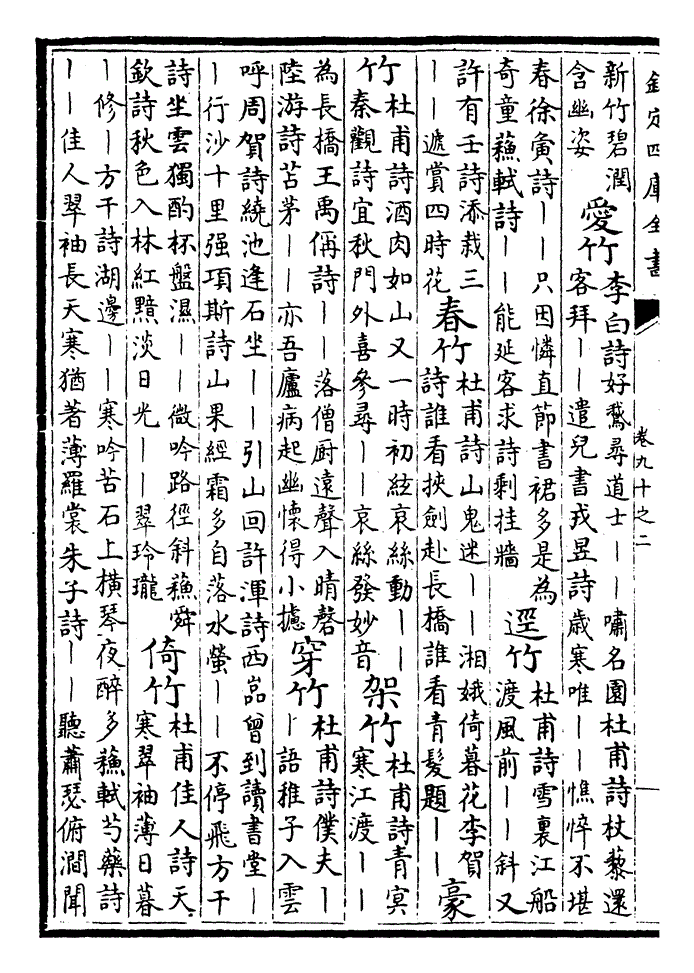 欽定四庫全書
卷九十之二
新竹碧潤
含幽姿
愛竹
李白詩好鵞尋道士丨丨嘯名園杜甫詩杖藜還
客拜丨丨遣兒書戎昱詩歲寒唯丨丨憔悴不堪
春徐夤詩丨丨只因憐直節書裙多是為
奇童蘓軾詩丨丨能延客求詩剩挂牆
逕竹
杜甫詩雪裏江船
渡風前丨丨斜又
許有壬詩添栽三
丨丨遞賞四時花
春竹
杜甫詩山鬼迷丨丨湘娥倚暮花李賀
詩誰看挾劍赴長橋誰看青髮題丨丨
豪
竹
杜甫詩酒肉如山又一時初絃哀絲動丨丨
秦觀詩宜秋門外喜參尋丨丨哀絲發妙音
架竹
杜甫詩青冥
寒江渡丨丨
為長橋王禹偁詩丨丨落僧厨遠聲入晴磬
陸游詩苫茅丨丨亦吾廬病起幽懷得小攄
穿竹
杜甫詩僕夫丨
丨語稚子入雲
呼周賀詩繞池逢石坐丨丨引山回許渾詩西嵓曾到讀書堂丨
丨行沙十里强項斯詩山果經霜多自落水螢丨丨不停飛方干
詩坐雲獨酌杯盤濕丨丨微吟路徑斜蘓舜
欽詩秋色入林紅黯淡日光丨丨翠玲瓏
倚竹
杜甫佳人詩天
寒翠袖薄日暮
丨修丨方干詩湖邊丨丨寒吟苦石上橫琴夜醉多蘓軾芍藥詩
丨丨佳人翠袖長天寒猶著薄羅裳朱子詩丨丨聽蕭瑟俯澗聞